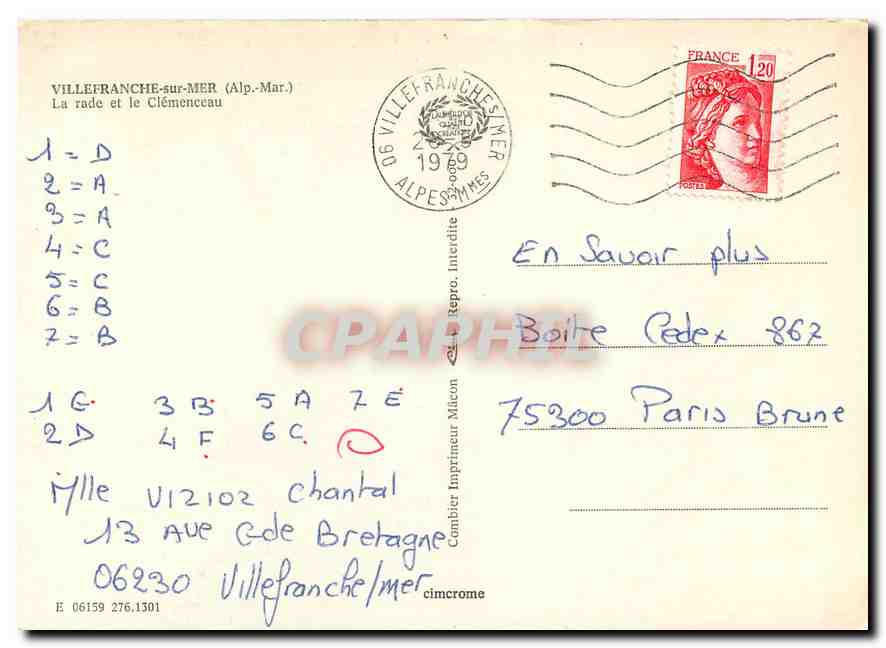 VILLEFRANCHE-sur-MER (Alp.-Mar.)
La rade et le Clémenceau
06 VILLEFRANCHE S/MER
1979
ALPES MMES
FRANCE 1,20
POSTES
1 = D
2 = A
3 = A
4 = C
5 = C
6 = B
7 = B
1 G. 3 B. 5 A 7 E
2 D 4 F 6 C
Mlle VIZIOZ Chantal
13 Ave G. de Bretagne
06230 Villefranche/mer
E 06159 276.1301
CPAPHIL
Combier Imprimeur Mâcon
Repro. Interdite
cimcrome
En Savoir plus
Boite Cedex 867
75300 Paris Brune